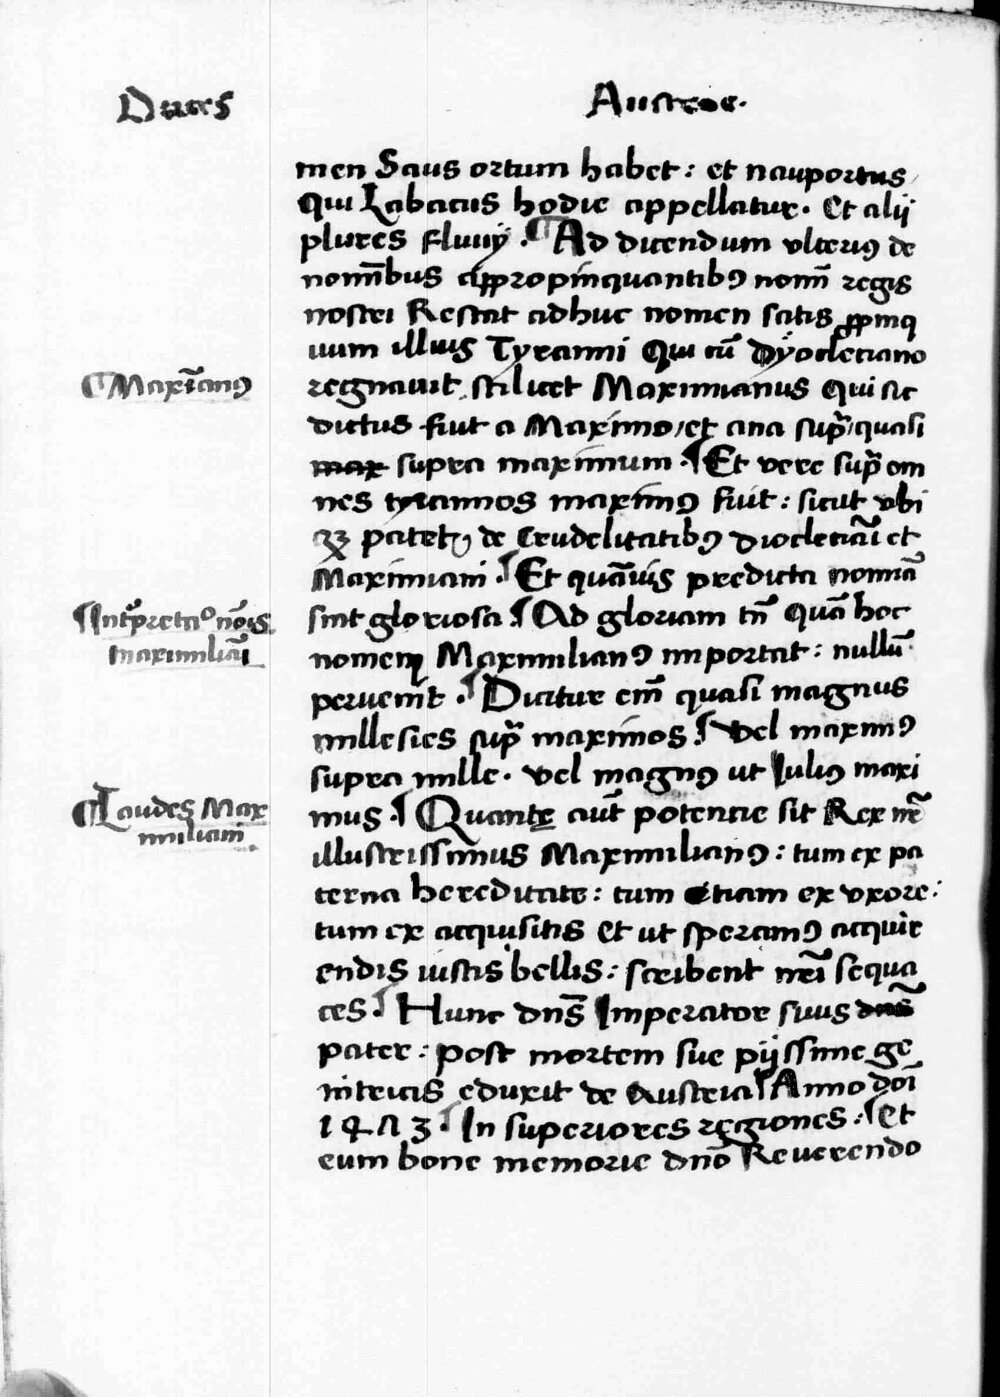 Duces Austrie.
men Saus ortum habet: et nauportus
Qui Labacus hodie appellatur. Et alij
plures fluuij. ¶ Ad dicendum vlteriꝰ de
nomībus appropinquantibꝰ nomī regis
nostri Restat adhuc nomen satis ꝓpinq
uum illius Tyranni Qui cū Dyocleciano
¶ Maxīianꝰ
regnauit, scilicet Maximianus Qui sic
dictus fuit a Maximo, et ana supͣ, quasi
max supra maximum. ¶ Et vere supͣ om
nes tyrannos maximꝰ fuit: sicut vbi
patet de Crudelitatibꝰ diocleciāi et
Maximiani. ¶ Et quāuis predicta nomīa
¶ Intꝑretatō noīs
maximiliāi
sint gloriosa ¶ Ad gloriam tn̄ Quā hoc
nomen Maximilianꝰ importat: nullū
peruenit. ¶ Dicitur em̄ quasi magnus
millesies supͣ maximos. ¶ Vel maximꝰ
supra mille. vel magnꝰ ut Iuliꝰ maxi
¶ Laudes Max
imiliani
mus. ¶ Quantę aut̄ potencie sit Rex nr̄
illustrissimus Maximilianꝰ: tum ex pa
terna hereditate: tum etiam ex vxore:
tum ex acquisitis et ut speramꝰ acquir
endis iustis bellis: scribent nr̄i sequa
ces. ¶ Hunc dn̄s Imperator suus dn̄s
pater: post mortem sue pijssime ge
nitricis eduxit de Austria ¶ Anno doī
1473. ¶ In superiores regiones: ¶ et
eum bone memorie dn̄o Reuerendo